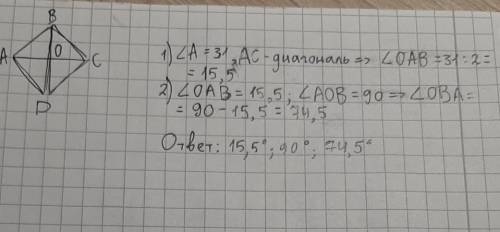 B
A
O
C
D
1) ∠A = 31, AC - диагональ => ∠OAB = 31:2 =
= 15,5
2) ∠OAB = 15,5; ∠AOB = 90 => ∠OBA =
= 90 - 15,5 = 74,5
Ответ: 15,5°; 90°; 74,5°